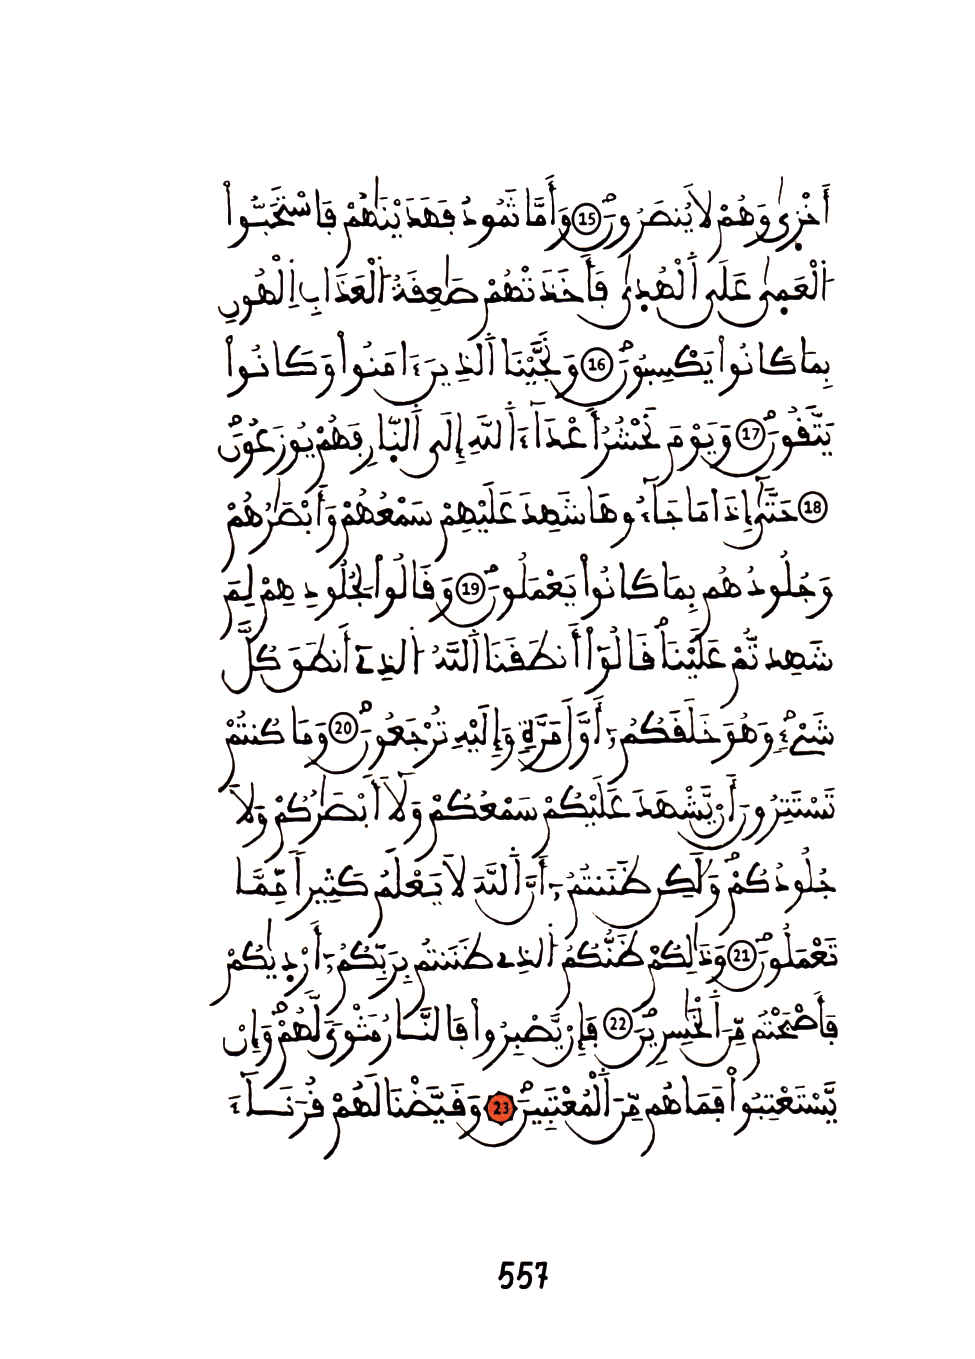 أَخْزِىٰ وَهُمْ لَا يُنصَرُونَ 15 وَأَمَّا ثَمُودُ فَهَدَيْنَٰهُمْ فَاسْتَحَبُّواْ
اَ۬لْعَمِىٰ عَلَى اَ۬لْهُدِىٰ فَأَخَذَتْهُمْ صَٰعِقَةُ اُ۬لْعَذَابِ اِ۬لْهُونِ
بِمَا كَانُواْ يَكْسِبُونَ 16 وَنَجَّيْنَا اَ۬لذِينَ ءَامَنُواْ وَكَانُواْ
يَتَّقُونَ 17 وَيَوْمَ نَحْشُرُ أَعْدَآءَ اَ۬للَّهِ إِلَى اَ۬لنّ۪ارِ فَهُمْ يُوزَعُونَ
18 حَتَّىٰٓ إِذَا مَا جَآءُوهَا شَهِدَ عَلَيْهِمْ سَمْعُهُمْ وَأَبْصَٰرُهُمْ
وَجُلُودُهُم بِمَا كَانُواْ يَعْمَلُونَ 19 وَقَالُواْ لِجُلُودِهِمْ لِمَ
شَهِدتُّمْ عَلَيْنَا قَالُوٓاْ أَنطَقَنَا اَ۬للَّهُ اُ۬لذِےٓ أَنطَقَ كُلَّ
شَےْءٍ وَهُوَ خَلَقَكُمُۥٓ أَوَّلَ مَرَّةٍ وَإِلَيْهِ تُرْجَعُونَ 20 وَمَا كُنتُمْ
تَسْتَتِرُونَ أَنْ يَّشْهَدَ عَلَيْكُمْ سَمْعُكُمْ وَلَآ أَبْصَٰرُكُمْ وَلَا
جُلُودُكُمْ وَلَٰكِن ظَنَنتُمُۥٓ أَنَّ اَ۬للَّهَ لَا يَعْلَمُ كَثِيراً مِّمَّا
تَعْمَلُونَ 21 وَذَٰلِكُمْ ظَنُّكُمُ اُ۬لذِے ظَنَنتُم بِرَبِّكُمُۥٓ أَرْدِىٰكُمْ
فَأَصْبَحْتُم مِّنَ اَ۬لْخَٰسِرِينَ 22 فَإِنْ يَّصْبِرُواْ فَالنَّارُ مَثْوىً لَّهُمْ وَإِنْ
يَّسْتَعْتِبُواْ فَمَا هُم مِّنَ اَ۬لْمُعْتَبِينَ 23 وَقَيَّضْنَا لَهُمْ قُرَنَآءَ
557